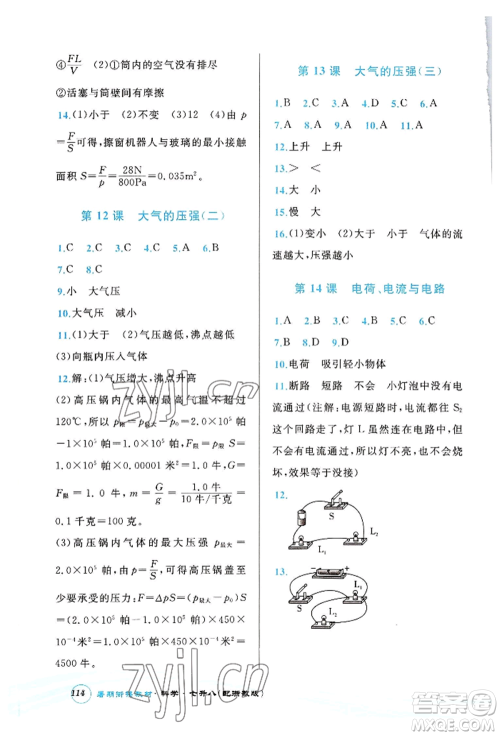 ④FL/V (2)①筒内的空气没有排尽
②活塞与筒壁间有摩擦
14.(1)小于 (2)不变 (3)小于 (4)由 p
=F/S可得,擦窗机器人与玻璃的最小接触
面积 S=F/p=28N/800Pa=0.035m².
第 12 课 大气的压强(二)
1.C 2.C 3.C 4.C 5.A 6.B
7.C 8.C
9.小 大气压
10.大气压 减小
11.(1)大于 (2)气压越低,沸点越低
(3)向瓶内压入气体
12.解:(1)气压越大,沸点升高
(2)高压锅内气体的最高温度不超过
120℃,所以 p最大=2.0×10⁵ 帕,F限=2.0×10⁵ 帕
-1×10⁵帕=1.0×10⁵ 帕,所以 F限=p限S=
1.0×10⁵ 帕×0.00001 米²=1.0 牛,G=
F限=1.0 牛,m=G/g=1.0 牛/10 牛/千克=
0.1 千克=100 克.
(3)高压锅内气体的最大压强 p最大=
2.0×10⁵ 帕,所以高压锅盖至
少要承受的压力:F=ΔpS=(p最大-p0)S
=(2.0×10⁵ 帕-1.0×10⁵ 帕)×450×
10⁻⁴米²=1.0×10⁵ 帕×450×10⁻⁴米²=
4500 牛.
114 暑期衔接教材·科学·七升八(配浙教版)
第 13 课 大气的压强(三)
1.B 2.A 3.C 4.B 5.C 6.A
7.A 8.A 9.A 10.A 11.C
12.上升 上升
13.> <
14.< <
15.慢 大
16.(1)变小 (2)大于 小于 气体的流
速越大,压强越小
第 14 课 电荷、电流与电路
1.A 2.A 3.A 4.B 5.C 6.C
7.D 8.D 9.B
10.电荷 吸引轻小物体
11.断路 短路 不会 小灯泡中没有电
流通过(注解:电源短路时,电流从 S₂
这个回路走了,灯 L 虽然连在电路中,但
没有电流通过,所以灯不亮,也不会烧
坏,效果等于没接)
12.
S
L₁
L₂
13.
S
L₁
L₂